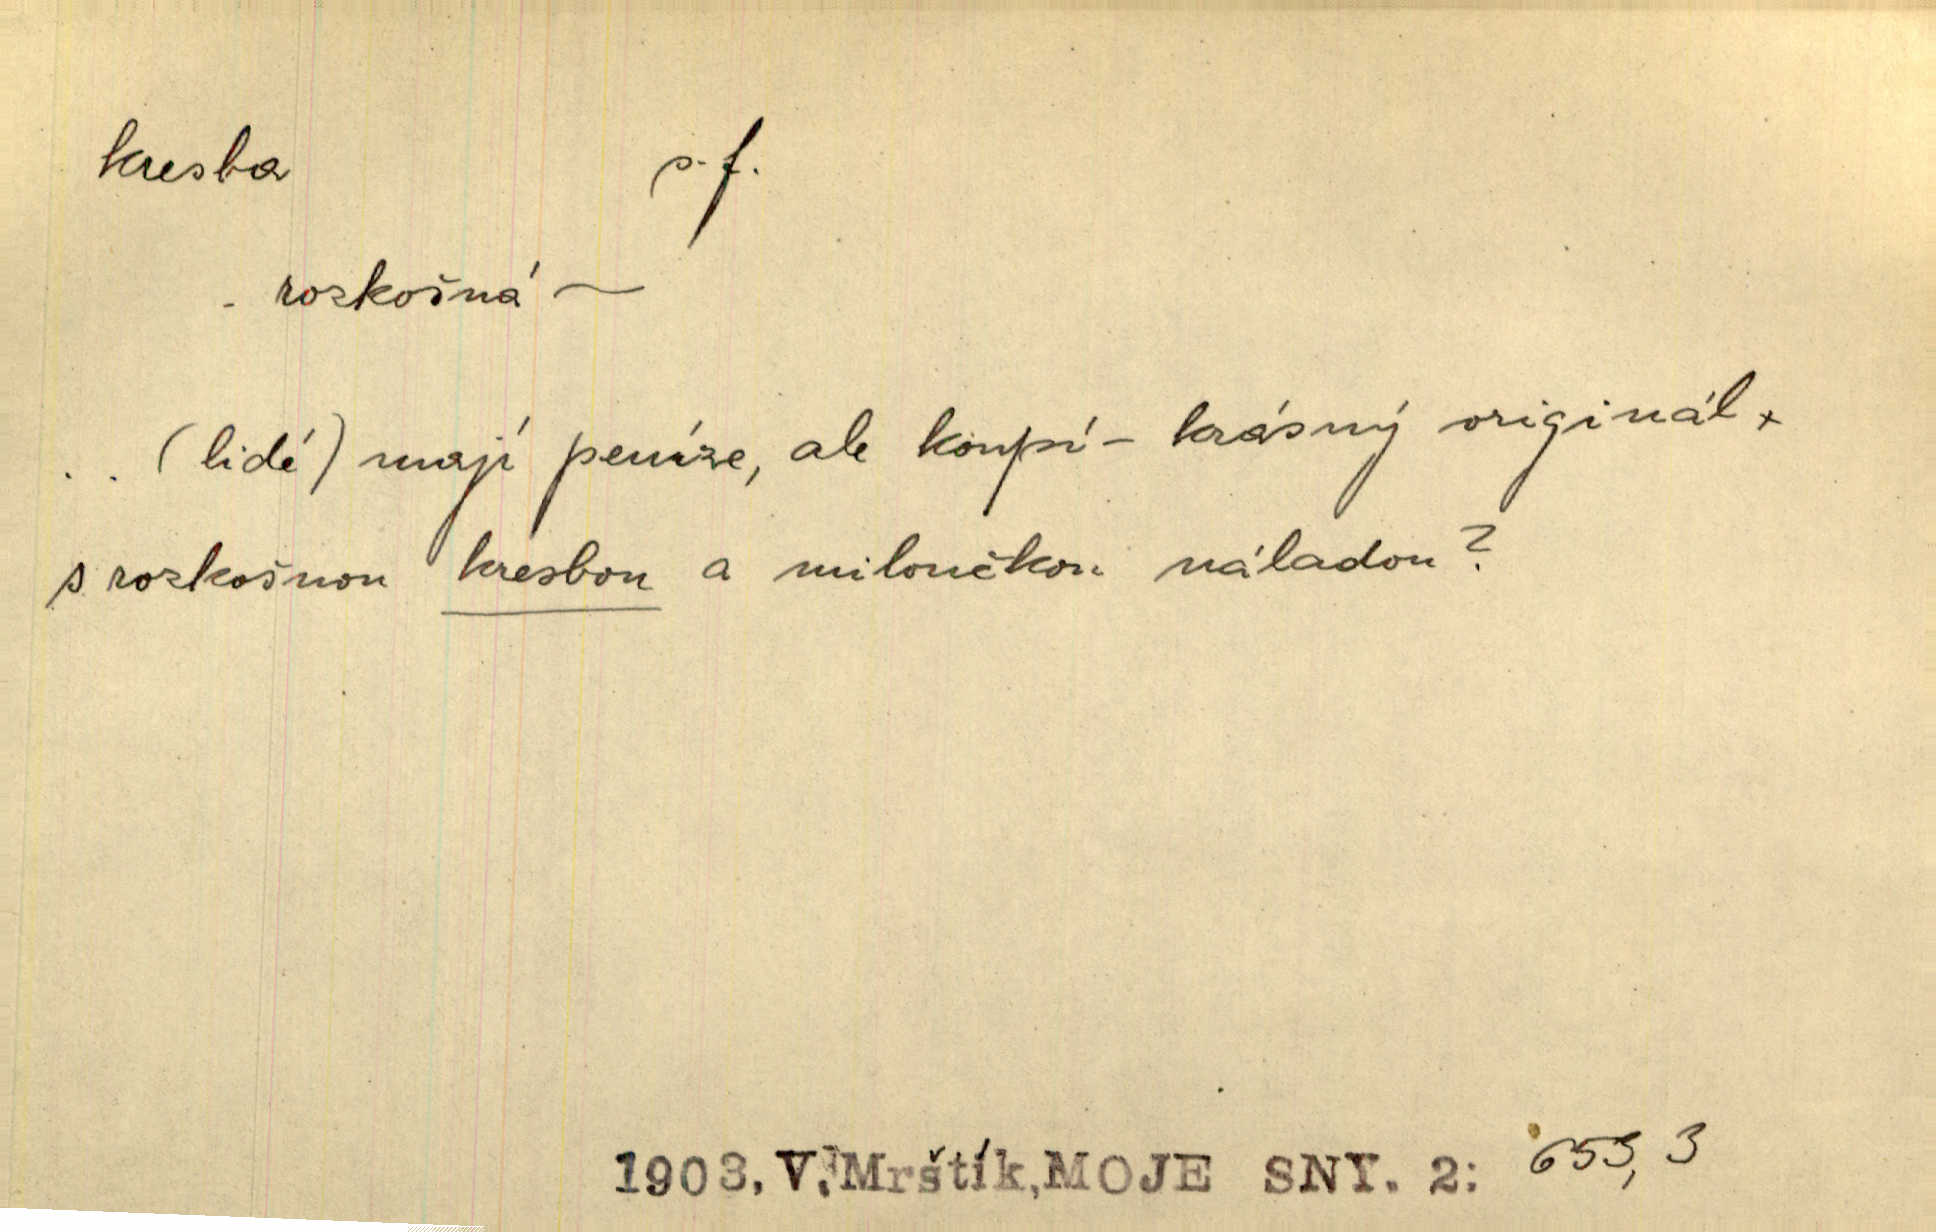 kresba s. f.
- rozkošná ~
.. (lidé) mají peníze, ale koupí - krásný originál x
s rozkošnou kresbou a miloučkou náladou?
1903, V. Mrštík, MOJE SNY. 2: 653, 3